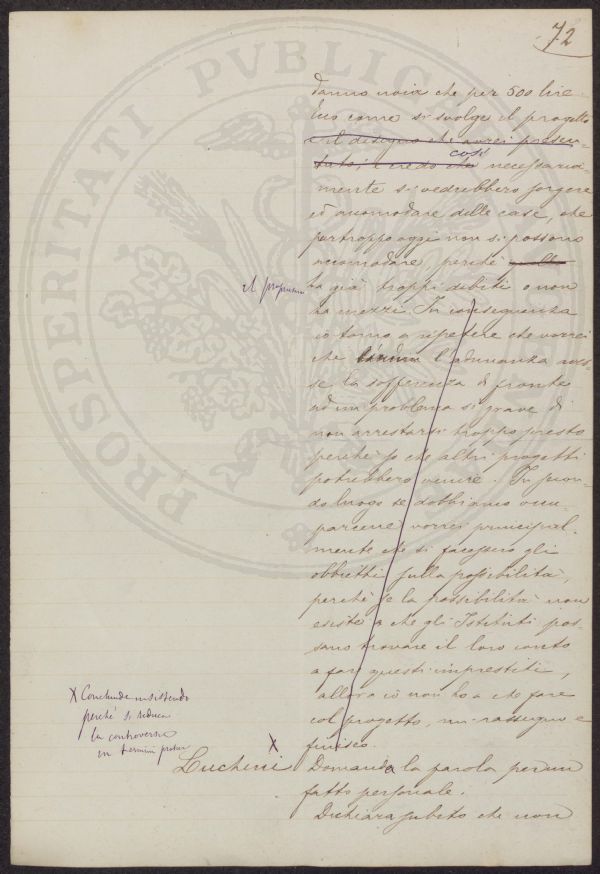 72
danno noia che per 500 lire.
Ecco come si svolge il progetto
e il disegno che avrei presen-
tato, e credo che così necessaria-
mente si vedrebbero sorgere
ed accomodare delle case, che
purtroppo oggi non si possono
accomodare, perché quello
il proprietario
ha già troppi debiti o non
ha mezzi. In conseguenza
io torno a ripetere che vorrei
che l'adunanza aves-
se la sofferenza di fronte
ad un problema sì grave di
non arrestarsi troppo presto
perché so che altri progetti
potrebbero venire. In secon-
do luogo se dobbiamo occu-
parcene vorrei principal-
mente che si facessero gli
obbietti sulla possibilità,
perché se la possibilità non
esiste a che gli Istituti pos-
sano trovare il loro conto
a far questi imprestiti,
allora io non ho a che fare
col progetto, mi rassegno e
finisco.
X Conclude insistendo
perché si riduca
la controversia
in termini pratici
X
Luchini Domanda la parola per un
fatto personale.
Dichiara subito che non
PROSPERITATI PVBLICAE